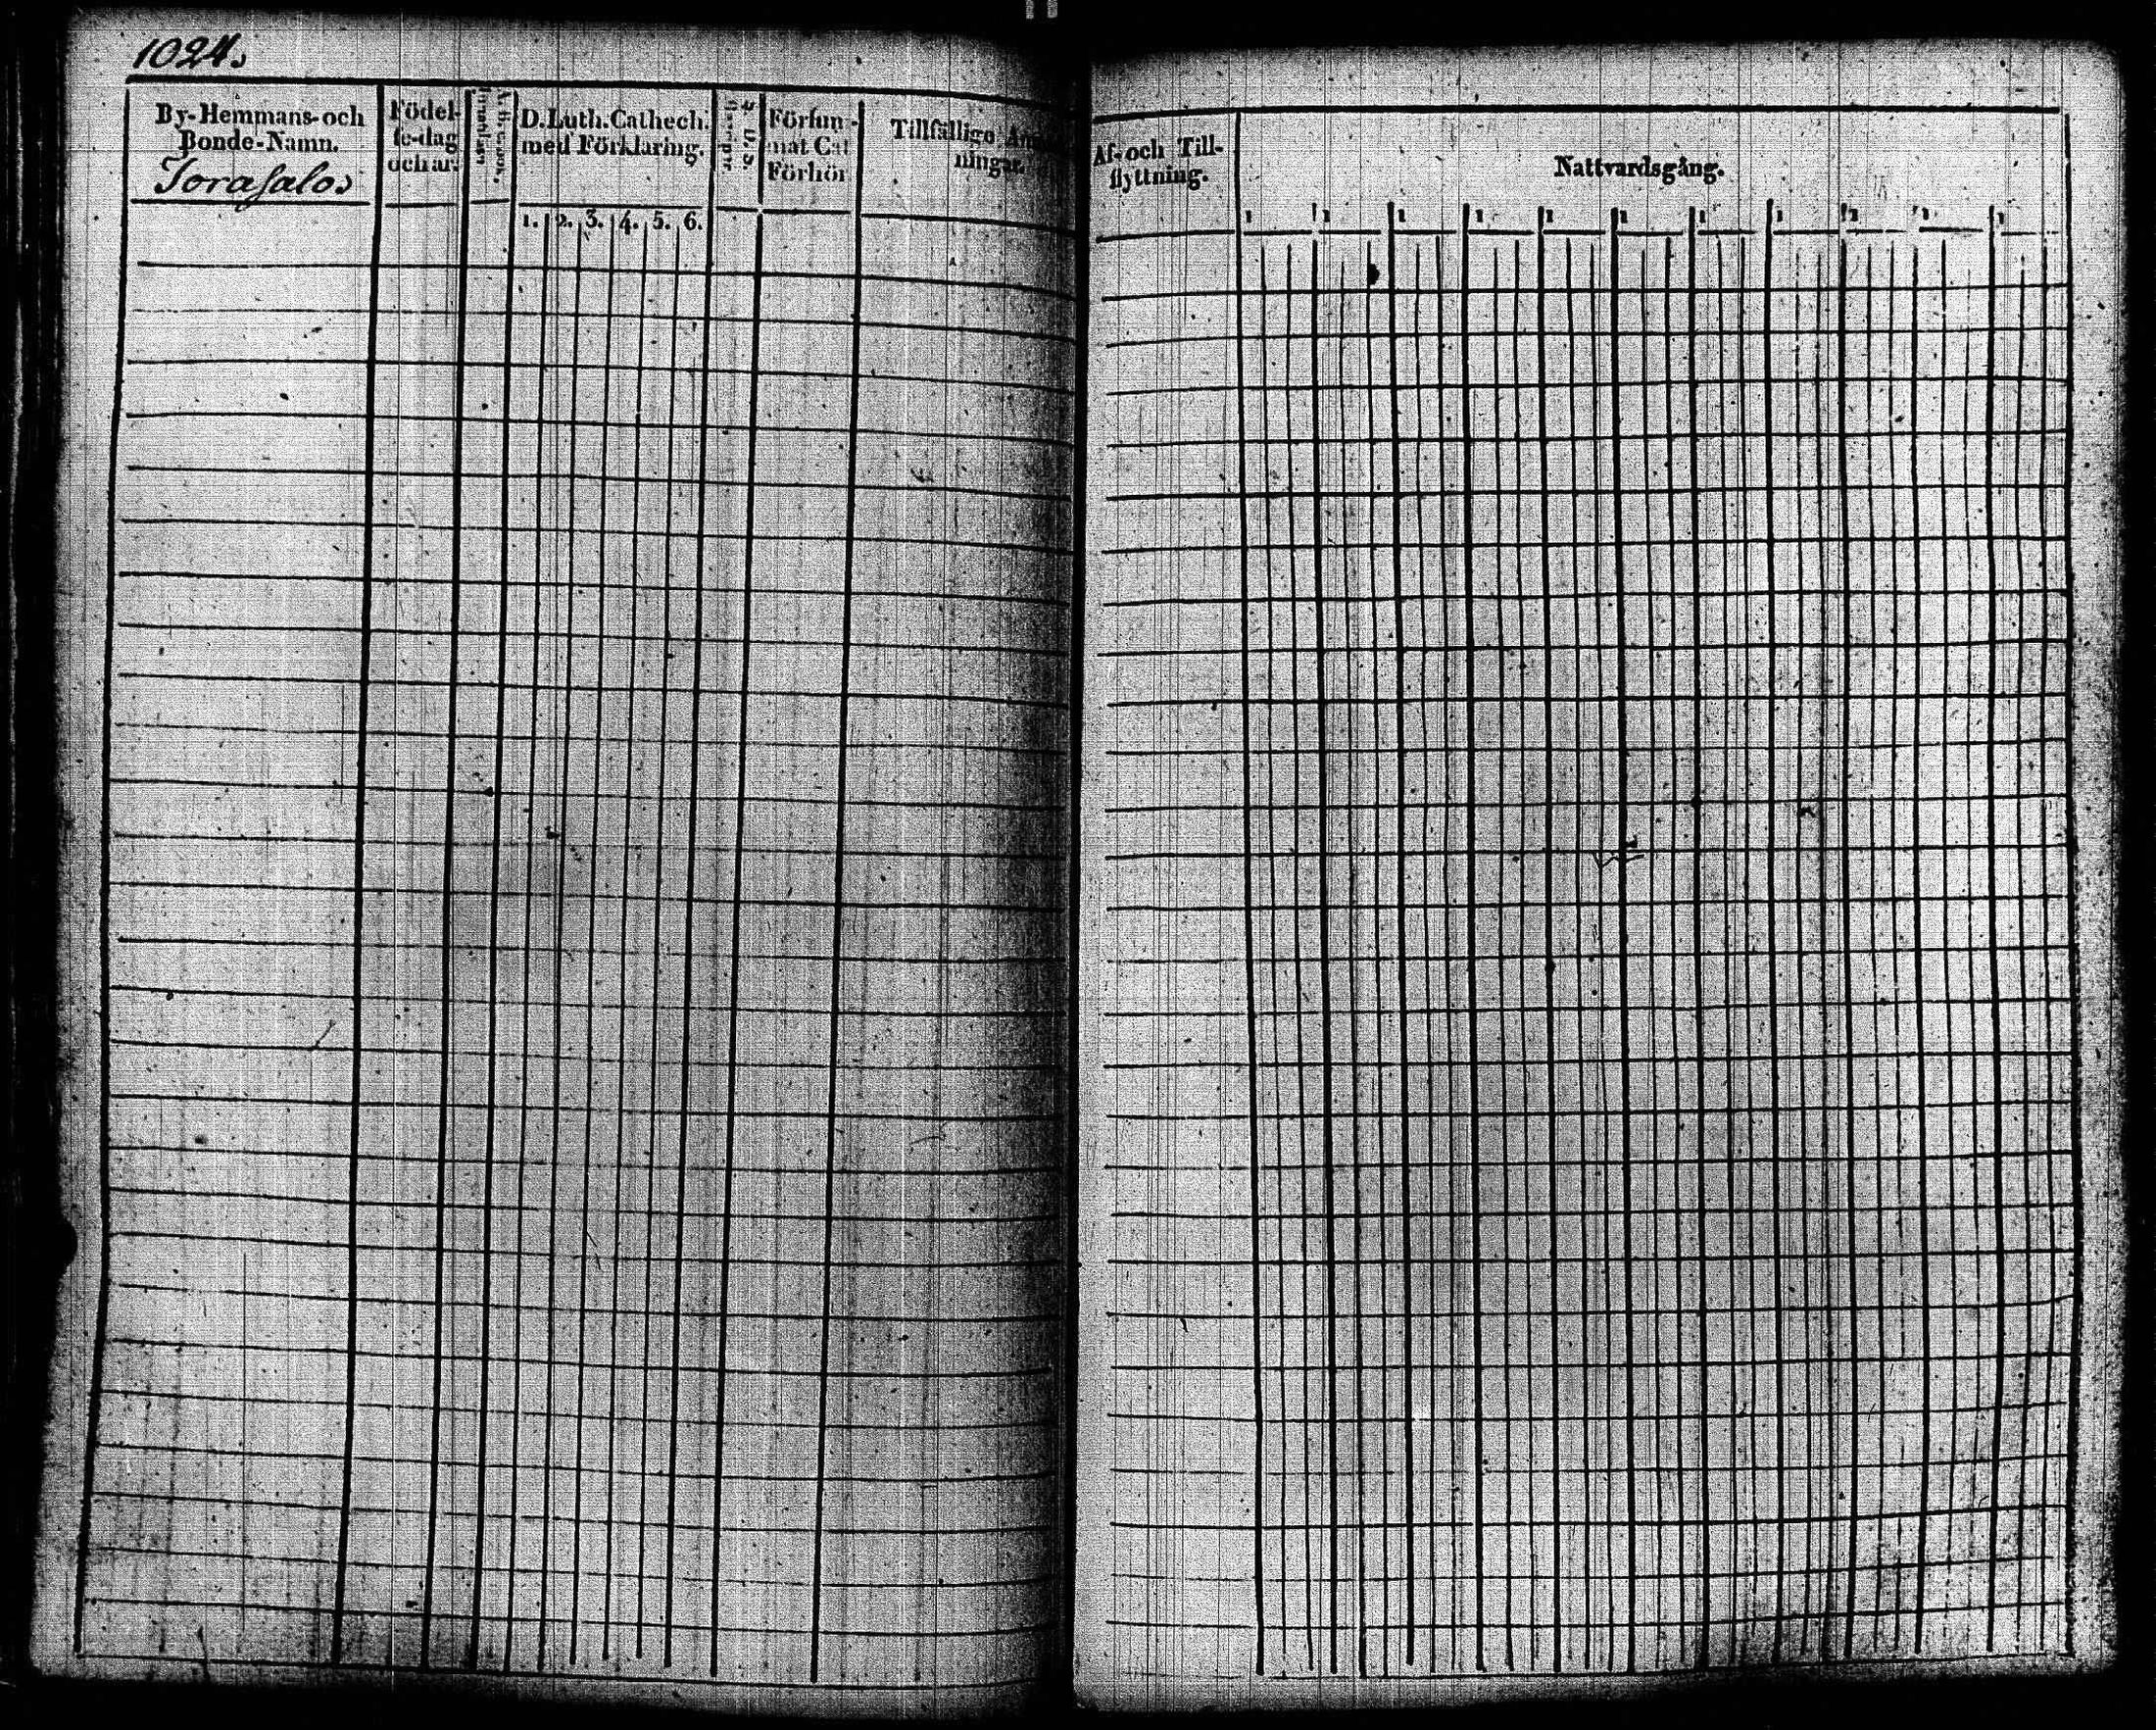 1024.
By-Hemmans-och
Bonde-Namn.
Sorasalo.
Födel-
se-dag
och år.
D. Luth. Cathech.
med Förklaring.
1. 2. 3. 4. 5. 6.
Försum-
mat Cat
Förhör
Tillfällige
ningar.
Af- och Till-
flyttning.
Nattvardsgång.
1 1 1 1 1 1 1 1 1 1 1